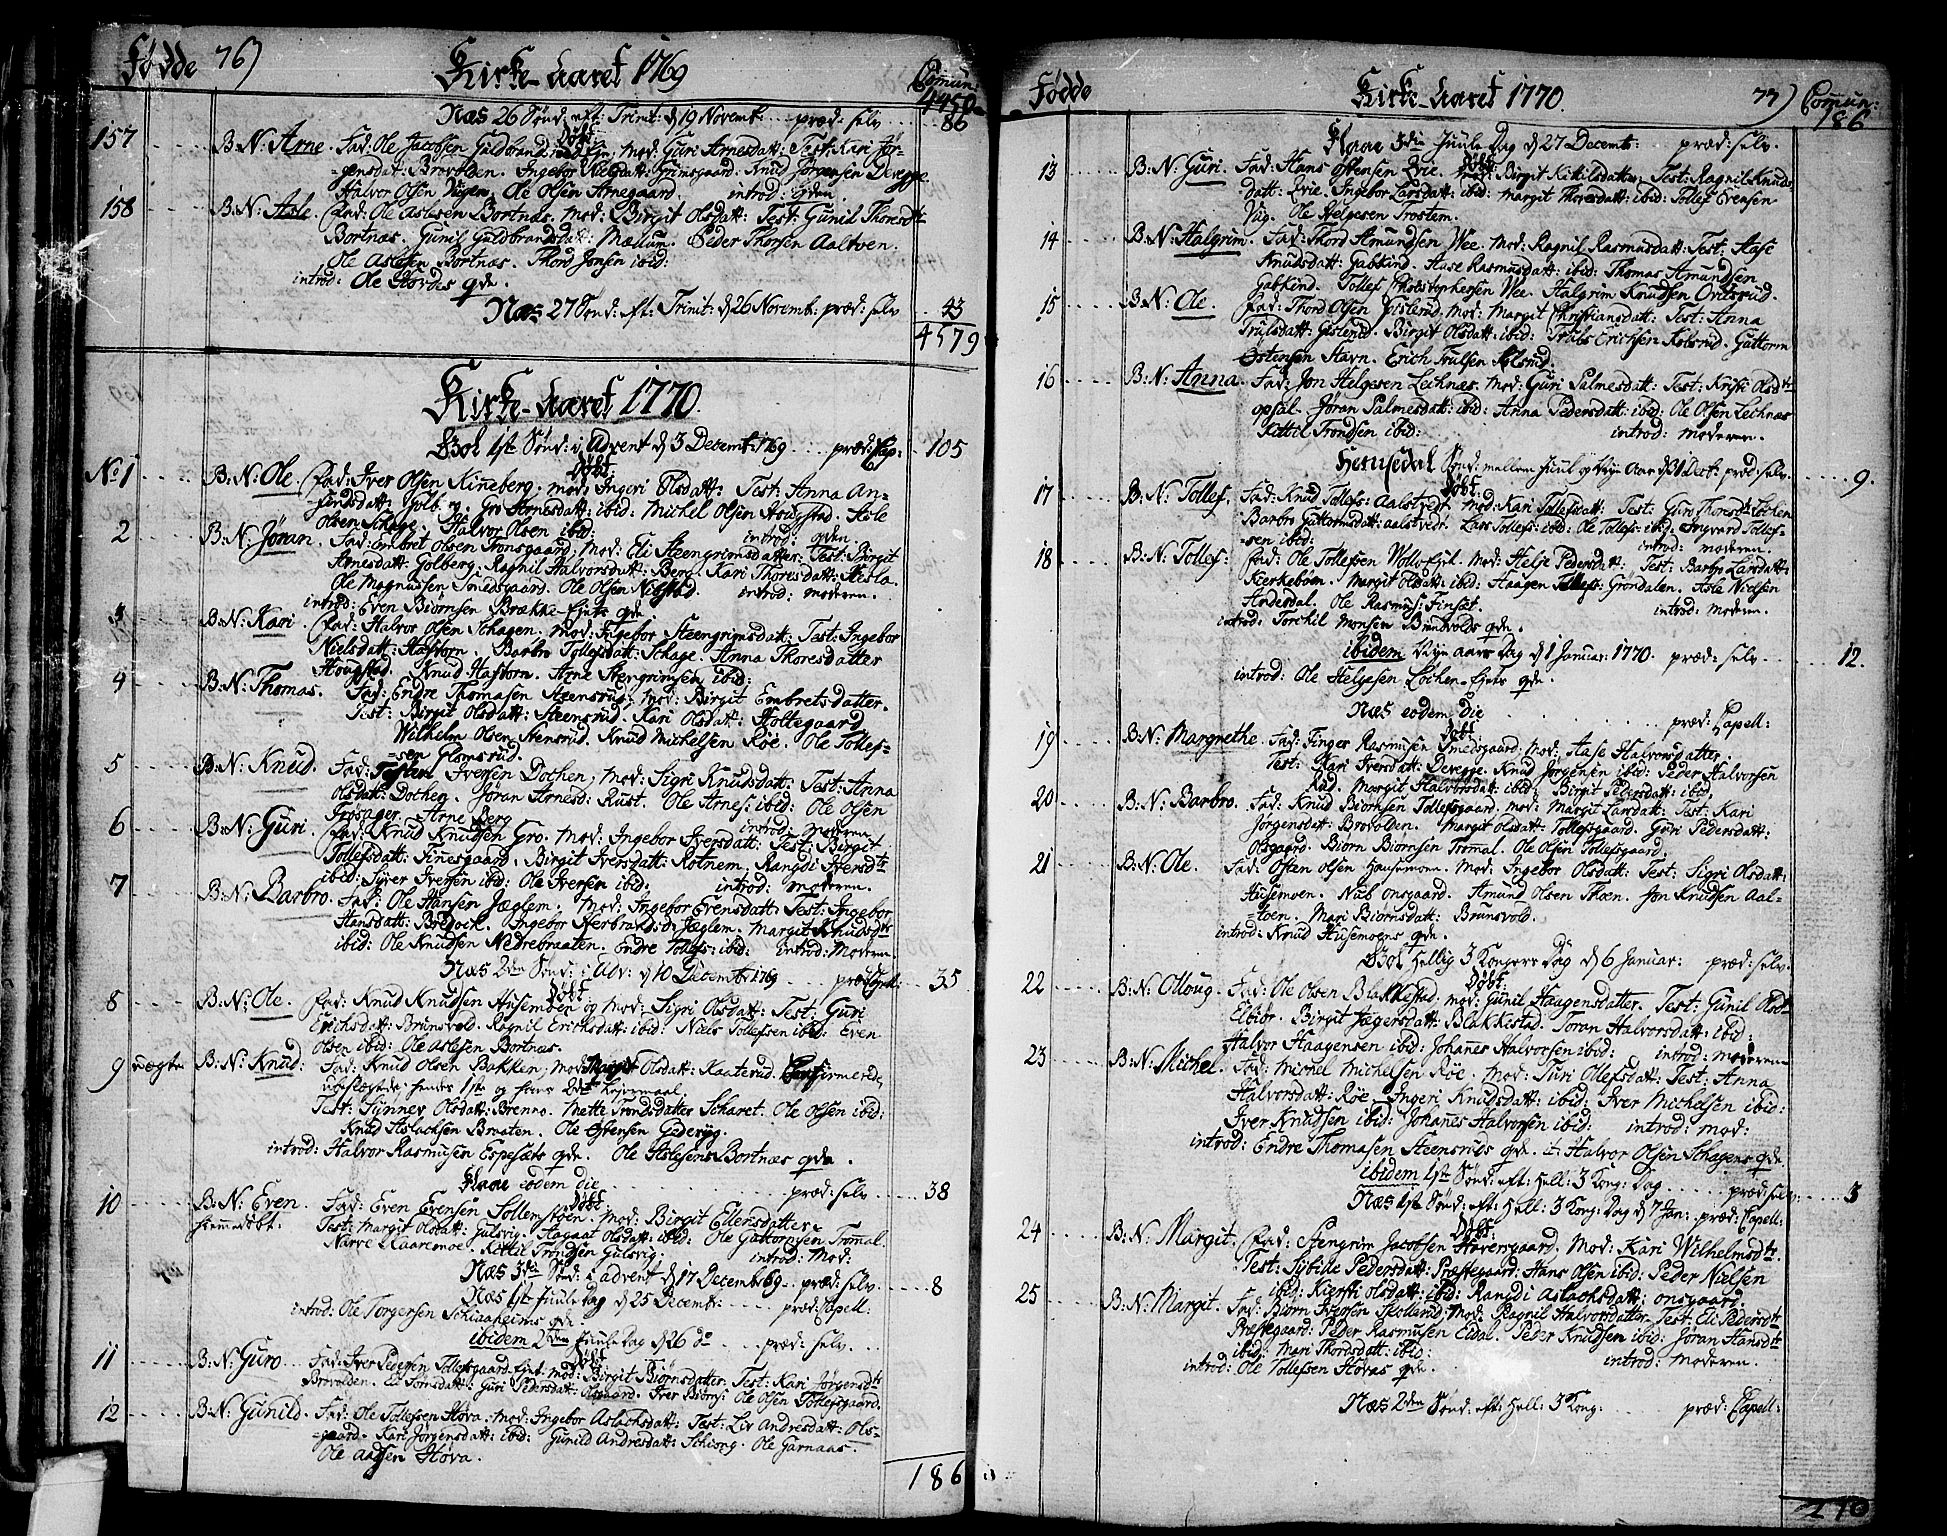 Fødde 76) Kirke-Aaret 1769 Comun:
4450
Næs 26 Sønd: eft: Trinit: d 19 Novemb: præd: selv 86
Døbt
157 B:N: Arne. Fad: Ole Jacobsen Guldbrand mod: Guri Arnesdatt: Test: Kari Jør-
gensdat: Brovolden. Ingebor Nielsdatt: Grimsgaard. Knud Jørgensen Devegge
Halvor Olsen Vigen. Ole Olsen Arnegaard. introd: qvden.
158 B:N: Asle. Fad: Ole Aslesen Bortnæs. Mod: Birgit Olsdatt: Test: Gunil Thoresdtr
Bortnæs. Gunil Guldbrandsdatt: Mællum. Peder Thorsen Aaltven.
Ole Aslesen Bortnæs. Thord Jonsen ibid:
introd: Ole Hordes qde.
Næs 27 Sønd: eft: Trinit: d 26 Novemb: præd: selv 43
4579
Kirke-Aaret 1770.
Gol 1ste Sønd: i Advent d 3 Decemb: 1769 præd: Cap: 105
Døbt
No 1 B:N: Ole. Fad: Iver Olsen Kineberg. mod: Ingeri Olsdatt: Test: Anna An-
Golberg. Gro Arnesdatt: ibid: Michel Olsen Haugstad. Asle
Olsen Schage. Halvor Olsen ibid: introd: qvden.
2 B:N: Jøran. Fad: Embret Olsen Tronsgaard, Mod: Eli Steengrimsdatter. Test: Birgit
Arnesdatt: Golberg. Ragnil Halvorsdatt: Berg. Kari Thoresdatt: Hesla.
Ole Magnussen Smedsgaard. Ole Olsen introd: moderen.
introd: Even Biørnsen Brække-Eiets qde
3 B:N: Kari. Fad: Halvor Olsen Schagen. Mod: Ingebor Steengrimsdatt: Test: Ingebor
Nielsdatt: Haftorn. Barbro Tollefsdatt: Schage. Anna Thoresdatter
Hougstad. Knud Haftorn. Arne Stengrimsen ibid:
4 B:N: Thomas. Fad: Endre Thomasen Steensrud, Mod: Birgit Embretsdatter.
Test: Birgit Olsdatt: Steensrud. Kari Olsdatt: Holtegaard
Wilhelm Olsen Stensrud. Knud Michelsen Røe. Ole Tollef-
sen Glomsrud.
5 B:N: Knud. Fad: Iversen Dothen, Mod: Sigri Knudsdatt: Test: Anna
Olsdatt: Dothen. Jøran Arnesd: Rust. Ole Arnes: ibid: Ole Olsen
Frøsager. Arne Berg introd: moderen
6 B:N: Guri. Fad: Knud Knudsen Gro. Mod: Ingebor Iversdatt: Test: Birgit
Tollefsdatt: Finesgaard. Birgit Iversdatt: Rotnem. Rangdi Iversdtr
ibid: Syver Iversen ibid: Ole Iversen ibid: introd: moderen.
7 B:N: Barbro. Fad: Ole Hansen Jæglem. Mod: Ingebor Evensdatt: Test: Ingebor
Hansdatt: Bredock. Ingebor Herbrandsd: Jæglem. Margit Knudsdtr
ibid: Ole Knudsen Nedrebraaten. Endre Tollefs: ibid: introd: Moderen.
Næs 2den Sønd: i Adv: d 10 Decembr 1769 præd: Capell: 35
Døbt
8 B:N: Ole. Fad: Knud Knudsen Husemoen og Mod: Sigri Olsdatt: Test: Guri
Erichsdatt: Brunsvold. Ragnil Erichsdatt: ibid: Niels Tollefsen ibid: Even
Olsen ibid: Ole Aslesen Bortnæs.
9 uægte B:N: Knud: Fad: Knud Olsen Bakken, mod: Margit Olsdatt: Kaaterud. Confirmerede,
ubeslægtede, hendes 1ste og hans 2det Lejermaal.
Test: Synnev Olsdatt: Brenno. Mette Trondsdatter Scharet. Ole Olsen ibid:
Knud Aslachsen Braaten. Ole Estensen
introd: Halvor Rasmusen Espesæts qde. Ole Aslesens Bortnæs qde.
Flaae eodem die præd: selv 38
Døbt
10 B:N: Even Fad: Even Evensen Sollemstoen. Mod: Birgit Ellensdatter.
hiemmedøbt: Test: Margit Olsdatt: Gulsvig. Aagaat Olsdatt: ibid: Ole Guttormsen Trømal
Narve Kaaremoe. Kittil Trondsen Gulsvig. introd: Mod:
Næs 3die Sønd: i advent d 17 Decemb: 69. præd: selv 8
Næs 1ste Juule Dag d 25 Decemb: præd: Capell:
introd: Ole Torgersen Schiaaheims qde
ibidem 2den Juule Dag d 26 do præd: selv
Døbt
11 B:N: Guro. Fad: Iver Pedersen Tollefsgaard-Eiet. Mod: Birgit Biørnsdatter. Test: Kari Jørgensdtr
Brovolden. Eli Guri Pedersdat: Olsgaard. Iver Biørns: Ole Olsen Tollefsgaard.
12 B:N: Gunild. Fad: Ole Tollefsen Høva. Mod: Ingebor Aslachsdatt: Test: Liv Andresdatt: Ols-
gaard. Kari Jørgensdatt: ibid: Gunild Andresdatt: Schiong. Ole Garnaas.
Ole Aadsen Høva.
186
Fødde Kirke-Aaret 1770. 77) Comun:
186
Flaae 3die Juule Dag d 27 Decemb: præd: selv.
Døbt
13 B:N: Guri. Fad: Hans Estensen Evie. Mod: Birgit Kittilsdatter. Test: Ragnil Knuds
datt: Evie. Ingebor Larsdatt: ibid: Margit Thoresdatt: ibid: Tollef Evensen
Vug. Ole Helgesen Trostem.
14 B:N: Halgrim. Fad: Thord Amundsen Wee. Mod: Ragnil Rasmusdatt: Test: Aase
Knutsdatt: Gabkind. Aase Rasmusdatt: ibid: Thomas Amundsen
Gabkind. Tollef Christophersen Wee. Halgrim Knudsen
15 B:N: Ole Fad: Thord Olsen Gislerud. Mod: Margit Christiansdatt: Test: Anna
Trulsdatt: Gislerud. Birgit Olsdatt: ibid: Truls Erichsen Kolsrud. Guttorm
Østensen Stavn. Erich Trulsen Kolsrud.
16 B:N: Anna. Fad: Jon Helgesen Lechnæs. Mod: Guri Palmesdatt: Test: Olsdtr
opsal. Jøran Palmesdatt: ibid: Anna Pedersdatt: ibid: Ole Olsen Lechnæs
Kittil Trondsen ibid: introd: moderen.
Hemsedal Sønd: mellem Juul og Nyn Aar d 31 Dec: præd: selv 9.
Døbt
17 B:N: Tollef. Fad: Knud Tollefs: Aalstvedt. Mod: Kari Tollefsdatt: Test: Guro Thoresd: Løchen
Barbro Guttormsdatt: Aalstvedt. Lars Tollefs: ibid: Ole Tollefs: ibid: Ingvard Tollef-
sen ibid: introd: moderen.
18 B:N: Tollef: Fad: Ole Tollefsen Mod: Helje Pedersdatt: Test: Barbro Larsdatt:
Kierkebøen. Margit Olsdatt: ibid: Haagen Tollefs: Grøndalen. Asle Nielsen
Andersdal. Ole Rasmus: Finset. introd: moderen.
introd: Torchil Monsen Brandvolds qde.
ibidem Nyn aars Dag d 1 Januar: 1770. præd: selv 12.
introd: Ole Helgesen Løchen-Eiets qde.
Næs eodem die præd: Capell:
Døbt
19 B:N: Margrethe. Fad: Finger Rasmusen Smedsgaard. Mod: Aase Halvorsdatter.
Test: Kari Iversdatt: Devegge. Knud Jørgensen ibid: Peder Halvorsen
Rud. Margit Halvorsdatt: ibid: Birgit Pedersdatt: ibid:
20 B:N: Barbro. Fad: Knud Biørnsen Tollefsgaard. Mod: Margit Larsdatt: Test: Kari
Jørgensdatt: Brovolden. Margit Olsdatt: Tollefsgaard. Guri Pedersdatt:
Olsgaard. Biørn Biørnsen Trømal. Ole Olsen Tollefsgaard.
21 B:N: Ole. Fad: Østen Olsen Husemoen. Mod: Ingebor Olsdatt: Test: Sigri Olsdatt:
Husemoen. Niels onsgaard. Amund Olsen Thoen. Jon Knudsen Aal-
toen. Mari Biørnsdatt: Brunsvold.
introd: Knud Husemoens qde.
Gol Hellig 3 Kongers Dag d 6 Januar: præd: selv.
Døbt
22 B:N: Olloug. Fad: Ole Olsen Blakkestad. Mod: Gunil Haagensdatter. Test: Gunil Olsdtr
Elbiør. Birgit Jægersdatt: Blakkestad. Jøran Halvorsdatt: ibid:
Halvor Haagensen ibid: Johannes Halvorsen ibid: introd: moderen
23 B:N: Michel. Fad: Michel Michelsen Røe. Mod: Guri Ollefsdatt: Test: Anna
Halvorsdatt: Røe. Ingeri Knudsdatt: ibid: Iver Michelsen ibid:
Iver Knudsen ibid: Johanes Halvorsen ibid: introd: mod:
introd: Endre Thomasen Steensruds qde. it: Halvor Olsen Schagens qde
ibidem 1ste Sønd: eft: Hell: 3 Kong: Dag præd: selv 3
Næs 1ste Sønd: eft: Hell: 3 Kong: Dag d 7 Jan: præd: Capell:
Døbt
24 B:N: Margit. Fad: Stengrim Jacobsen Hoversgaard. Mod: Kari Wilhelmsdtr
Test: Sybille Pedersdatt: Præstegaard: Hans Olsen ibid: Peder Nielsen
ibid: Kiersti Olsdatt: ibid: Randi Aslachsdatt: onsgaard.
25 B:N: Margit. Fad: Biørn Iversen Skollerud. Mod: Ragnil Halvorsdatter. Test: Eli Pedersdtr
Præstegaard: Peder Rasmusen Eidal. Peder Knudsen ibid: Jøran Hansdtr
ibid: Mari Thordsdatt: ibid: introd: moderen.
introd: Ole Tollefsen Hovas qde.
Næs 2den Sønd: eft: Hell: 3 Kong: præd: Capell:
210